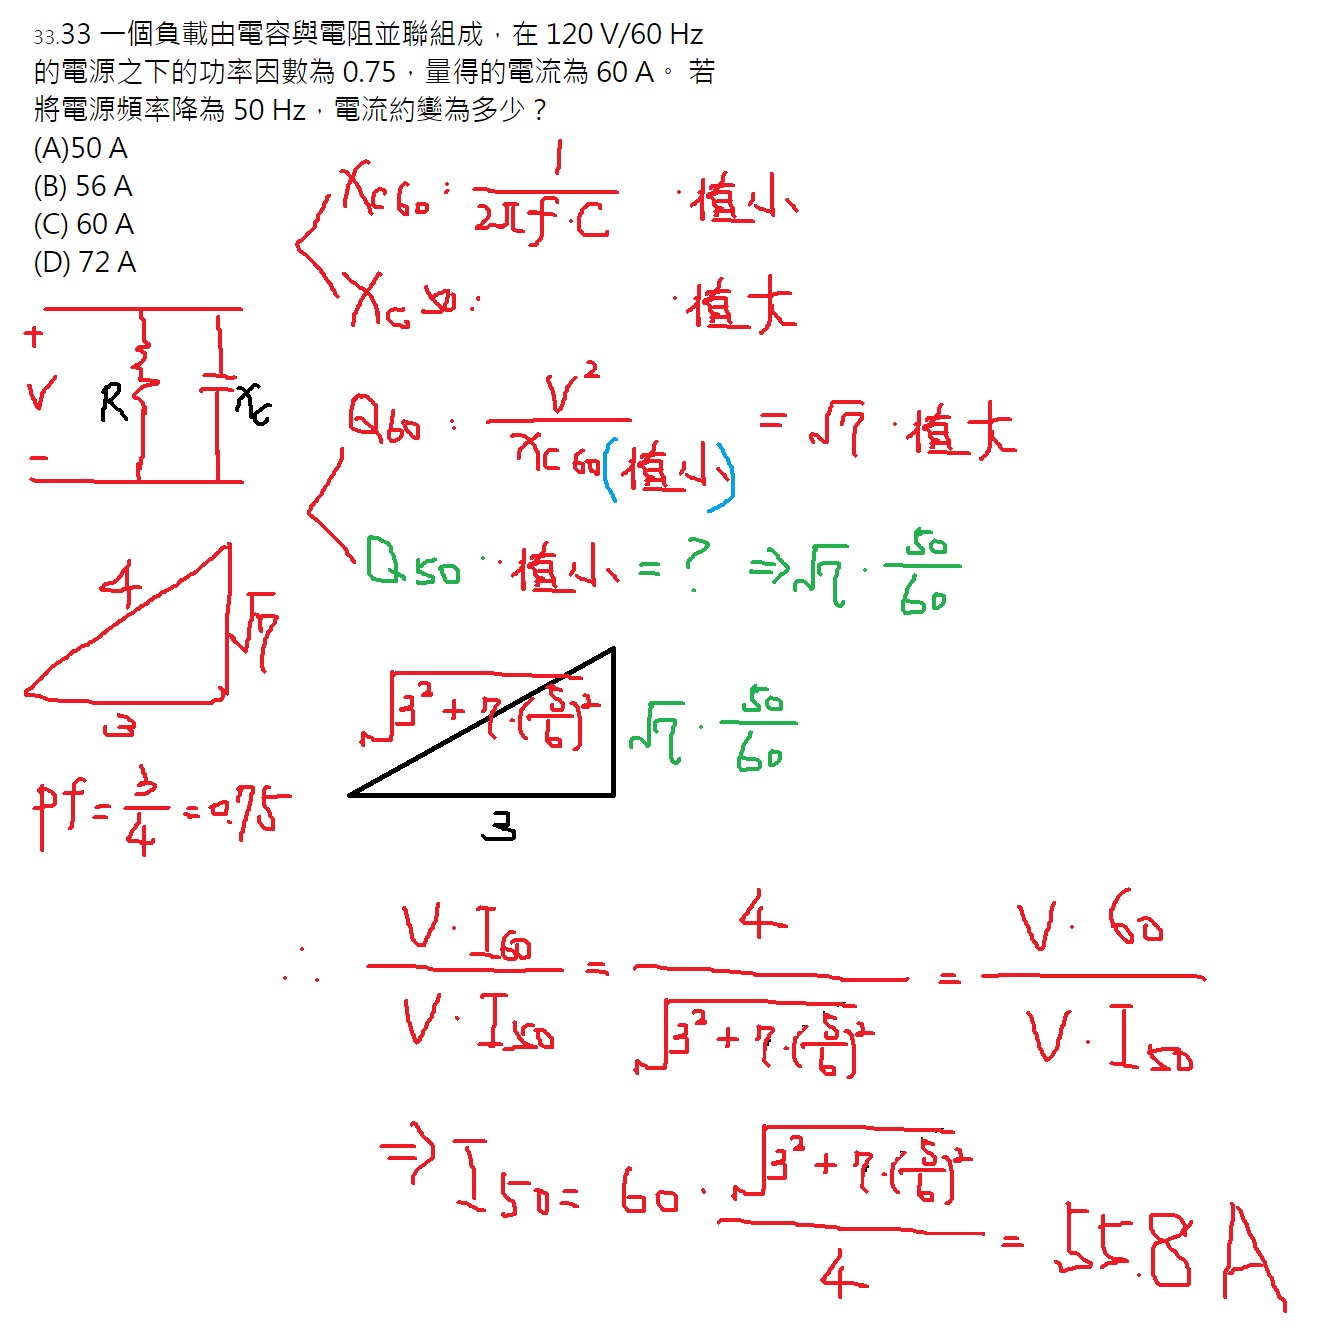 33.33 一個負載由電容與電阻並聯組成，在 120 V/60 Hz
的電源之下的功率因數為 0.75，量得的電流為 60 A。 若
將電源頻率降為 50 Hz，電流約變為多少？
(A)50 A
(B) 56 A
(C) 60 A
(D) 72 A
XC60 : 1/(2πf·C) · 值小
XC50 : · 值大
+
V
-
R
XC
Q60 : V²/(XC60(值小)) = √7 · 值大
Q50 : 值小 = ? ⇒ √7 · 50/60
4
√7
3
√(3² + 7·(5/6)²)
√7 · 50/60
3
Pf = 3/4 = 0.75
∴ (V·I60)/(V·I50) = 4/√(3² + 7·(5/6)²) = (V·60)/(V·I50)
⇒ I50 = 60 · √(3² + 7·(5/6)²)/4 = 55.8 A